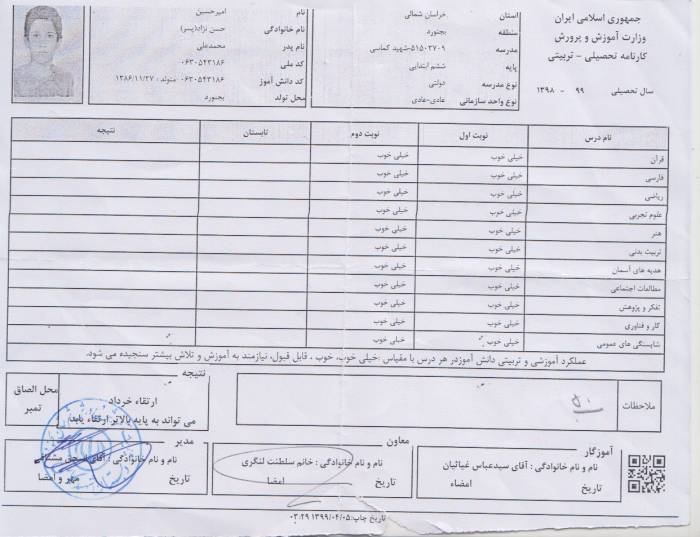 جمهوری اسلامی ایران
وزارت آموزش و پرورش
کارنامه تحصیلی - تربیتی
سال تحصیلی ۹۹ - ۱۳۹۸
استان خراسان شمالی
منطقه بجنورد
مدرسه ۵۱۵۰۳۷۰۹-شهید کماسی
پایه ششم ابتدایی
نوع مدرسه دولتی
نوع واحد سازمانی عادی-عادی
نام امیرحسین
نام خانوادگی حسن نژاد(پسر)
نام پدر محمدعلی
کد ملی ۰۶۳۰۵۴۳۱۸۶
کد دانش آموز ۰۶۳۰۵۴۳۱۸۶ متولد : ۱۳۸۶/۱۱/۲۷
محل تولد بجنورد
نام درس نوبت اول نوبت دوم تابستان نتیجه
قرآن خیلی خوب خیلی خوب
فارسی خیلی خوب خیلی خوب
ریاضی خیلی خوب خیلی خوب
علوم تجربی خیلی خوب خیلی خوب
هنر خیلی خوب خیلی خوب
تربیت بدنی خیلی خوب خیلی خوب
هدیه های آسمان خیلی خوب خیلی خوب
مطالعات اجتماعی خیلی خوب خیلی خوب
تفکر و پژوهش خیلی خوب خیلی خوب
کار و فناوری خیلی خوب خیلی خوب
شایستگی های عمومی خیلی خوب خیلی خوب
عملکرد آموزشی و تربیتی دانش آموزدر هر درس با مقیاس :خیلی خوب، خوب ، قابل قبول، نیازمند به آموزش و تلاش بیشتر سنجیده می شود.
ملاحظات
نتیجه
ارتقاء خرداد
می تواند به پایه بالاتر ارتقاء یابد
محل الصاق
تمبر
آموزگار
نام و نام خانوادگی : آقای سیدعباس غیاثیان
امضاء
تاریخ
معاون
نام و نام خانوادگی : خانم سلطنت لنگری
تاریخ امضا
مدیر
نام و نام خانوادگی : آقای
تاریخ مهر و امضا
تاریخ چاپ:۱۳۹۹/۰۴/۰۵